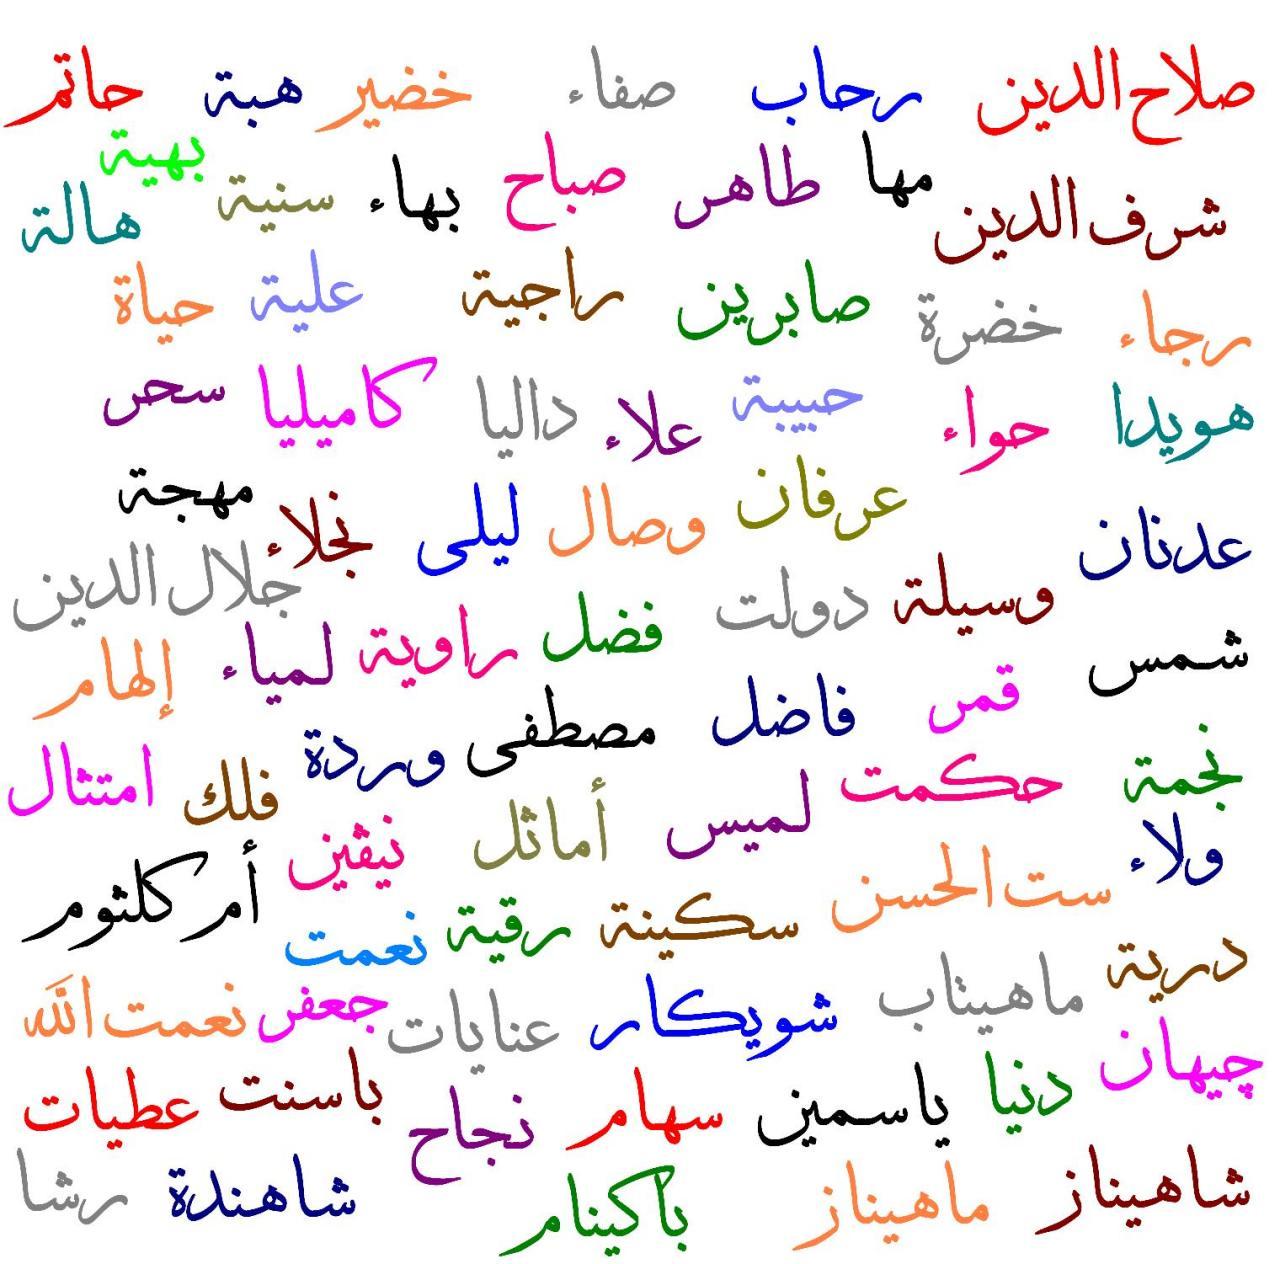 صلاح الدين رحاب صفاء خضير هبة حاتم
مها طاهر صباح بهاء سنية بهية
شرف الدين هالة
رجاء خضرة صابرين راجية علية حياة
هويدا حواء حبيبة علاء داليا كاميليا سحر
عدنان عرفان وصال ليلى نجلاء مهجة
وسيلة دولت جلال الدين
شمس فضل راوية لمياء إلهام
قمر فاضل مصطفى وردة
نجمة حكمت لميس أماثل فلك امتثال
ولاء نيڤين
ست الحسن سكينة رقية نعمت أم كلثوم
درية ماهيتاب شويكار عنايات جعفر نعمت الله
چيهان دنيا ياسمين سهام نجاح باسنت عطيات
شاهيناز ماهيناز باكينام شاهندة رشا